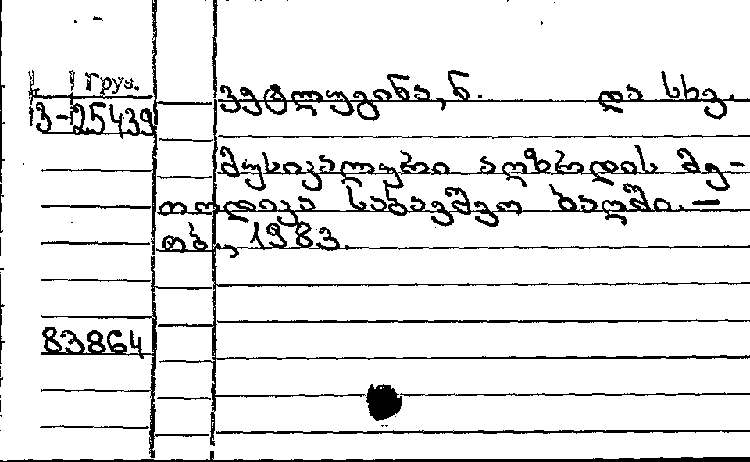 Груз.
3-25439
ვეტლუგინა, ნ. და სხვ.
მუსიკალური აღზრდის მე-
თოდიკა საბავშვო ბაღში. —
თბ., 1983.
83864